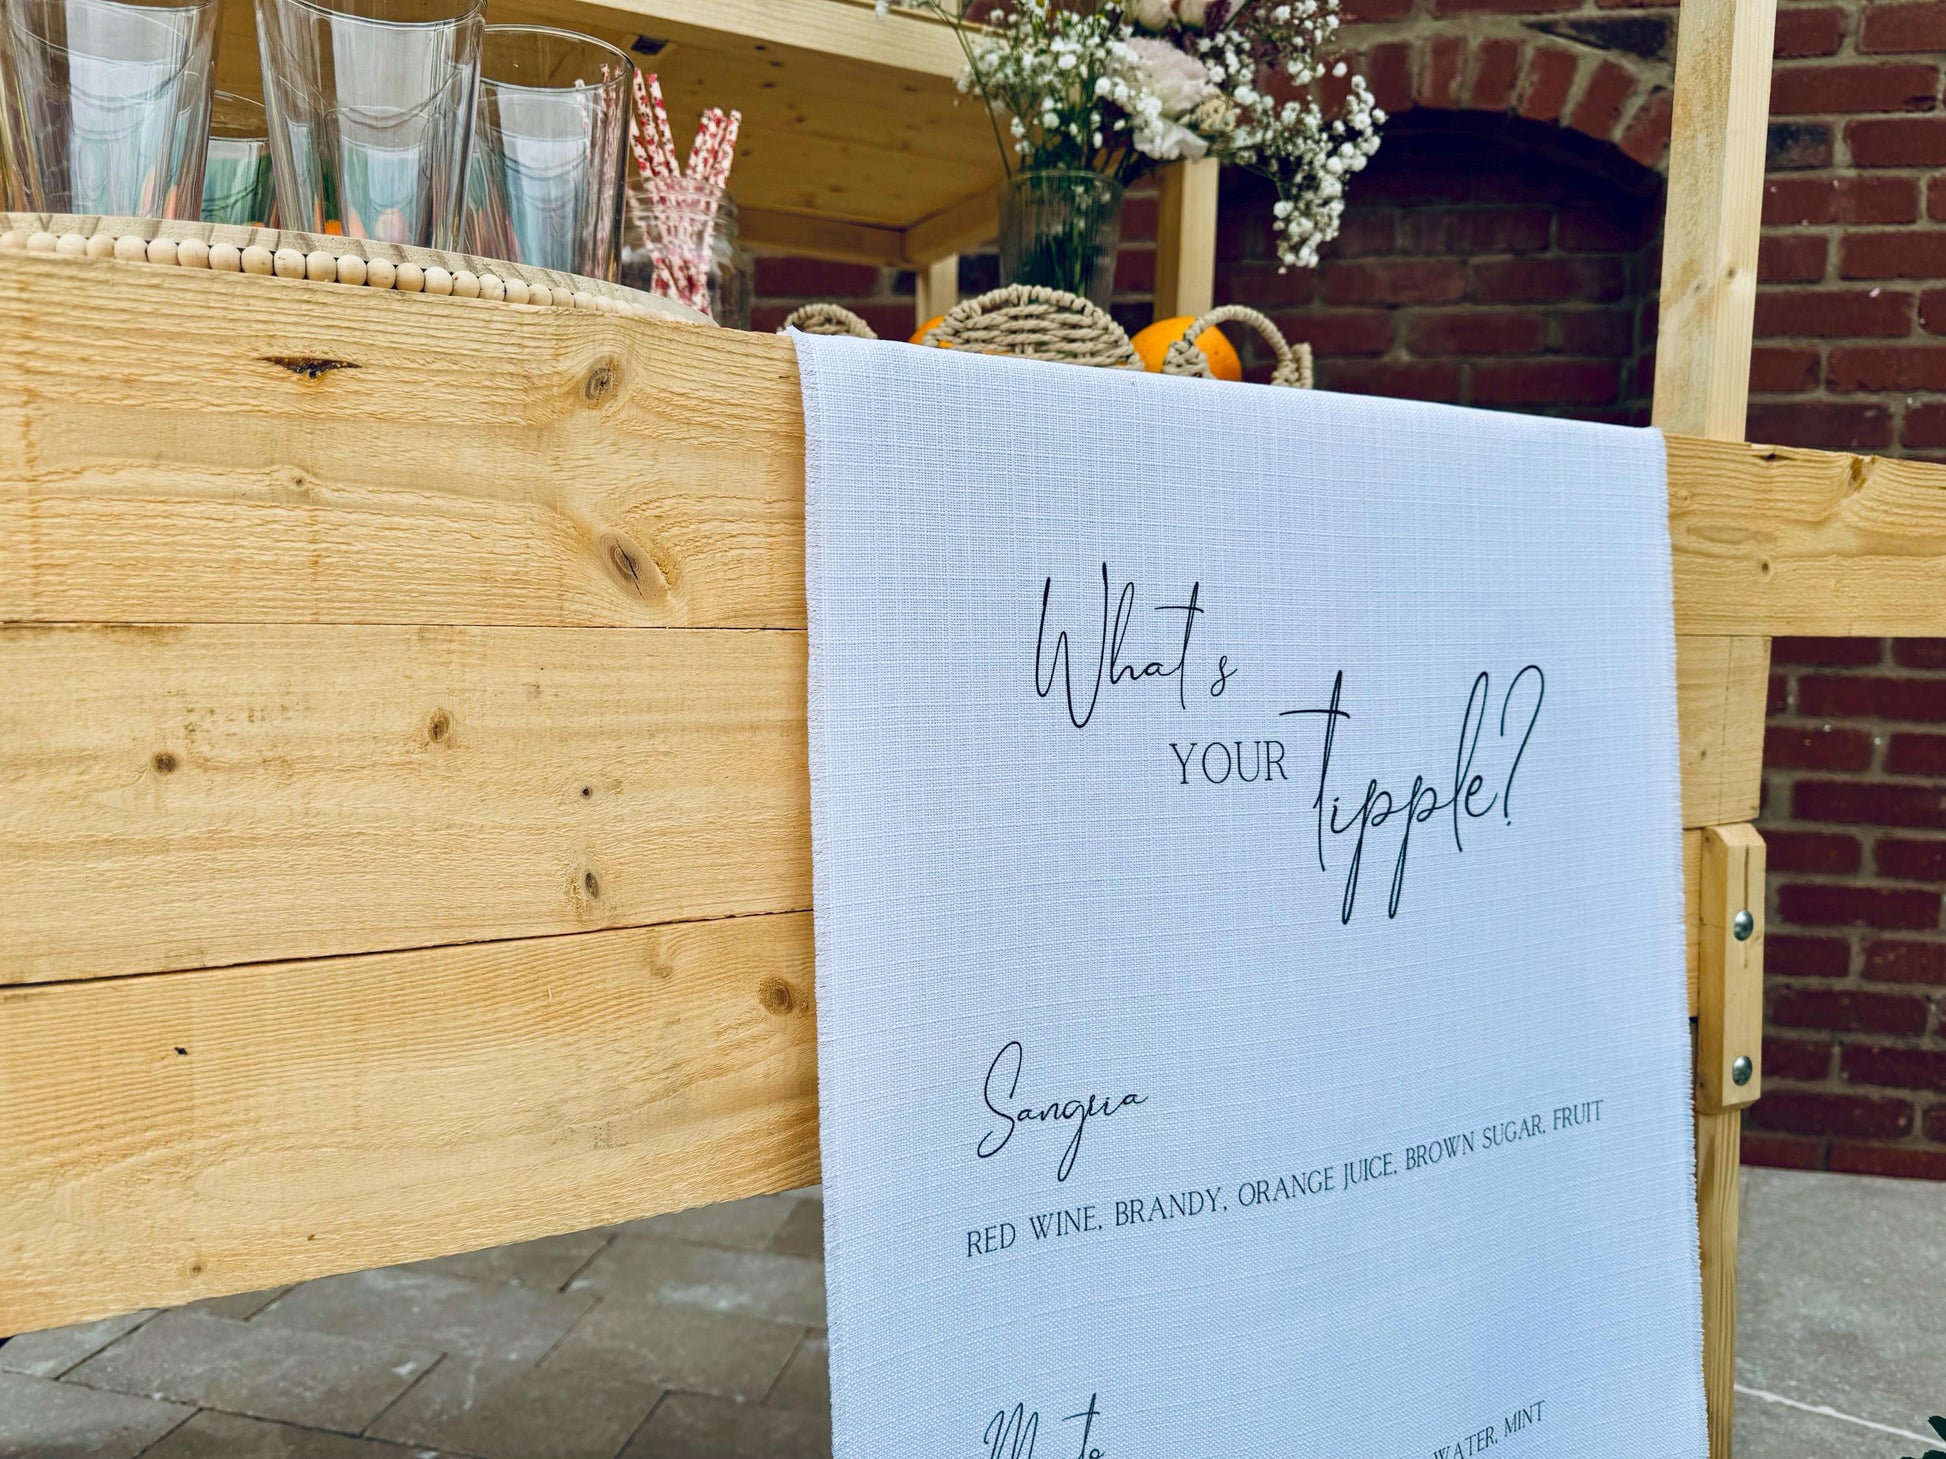 What's
YOUR tipple?
Sangria
RED WINE, BRANDY, ORANGE JUICE, BROWN SUGAR, FRUIT
WATER, MINT